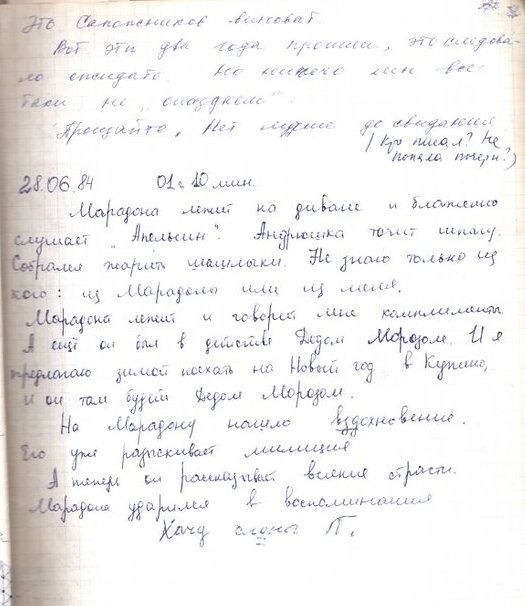 Это Сапожников виноват.
Вот эти два года прошли, это следова-
ло ожидать. Но ничего мы все
таки не „опоздаем".
Прощайте, Нет лучше до свидания.
(Кто писал? Не
поняла почерк?)
28.06.84 01 г 10 мин.
Марадона лежит на диване и блаженно
слушает „Апельсин". Андрюшка точит шпагу.
Собрался жарить шашлыки. Не знаю только из
кого: из Марадоны или из меня.
Марадона лежит и говорит мне комплименты.
А ещё он был в детстве Дедом Морозом. И я
предлагаю зимой поехать на Новый год в Купино,
и он там будет Дедом Морозом.
На Марадону нашло вздохновение.
Его уже разыскивает милиция
А теперь он рассказывает всякие страсти.
Марадона ударился в воспоминания
Хачу слоны П.